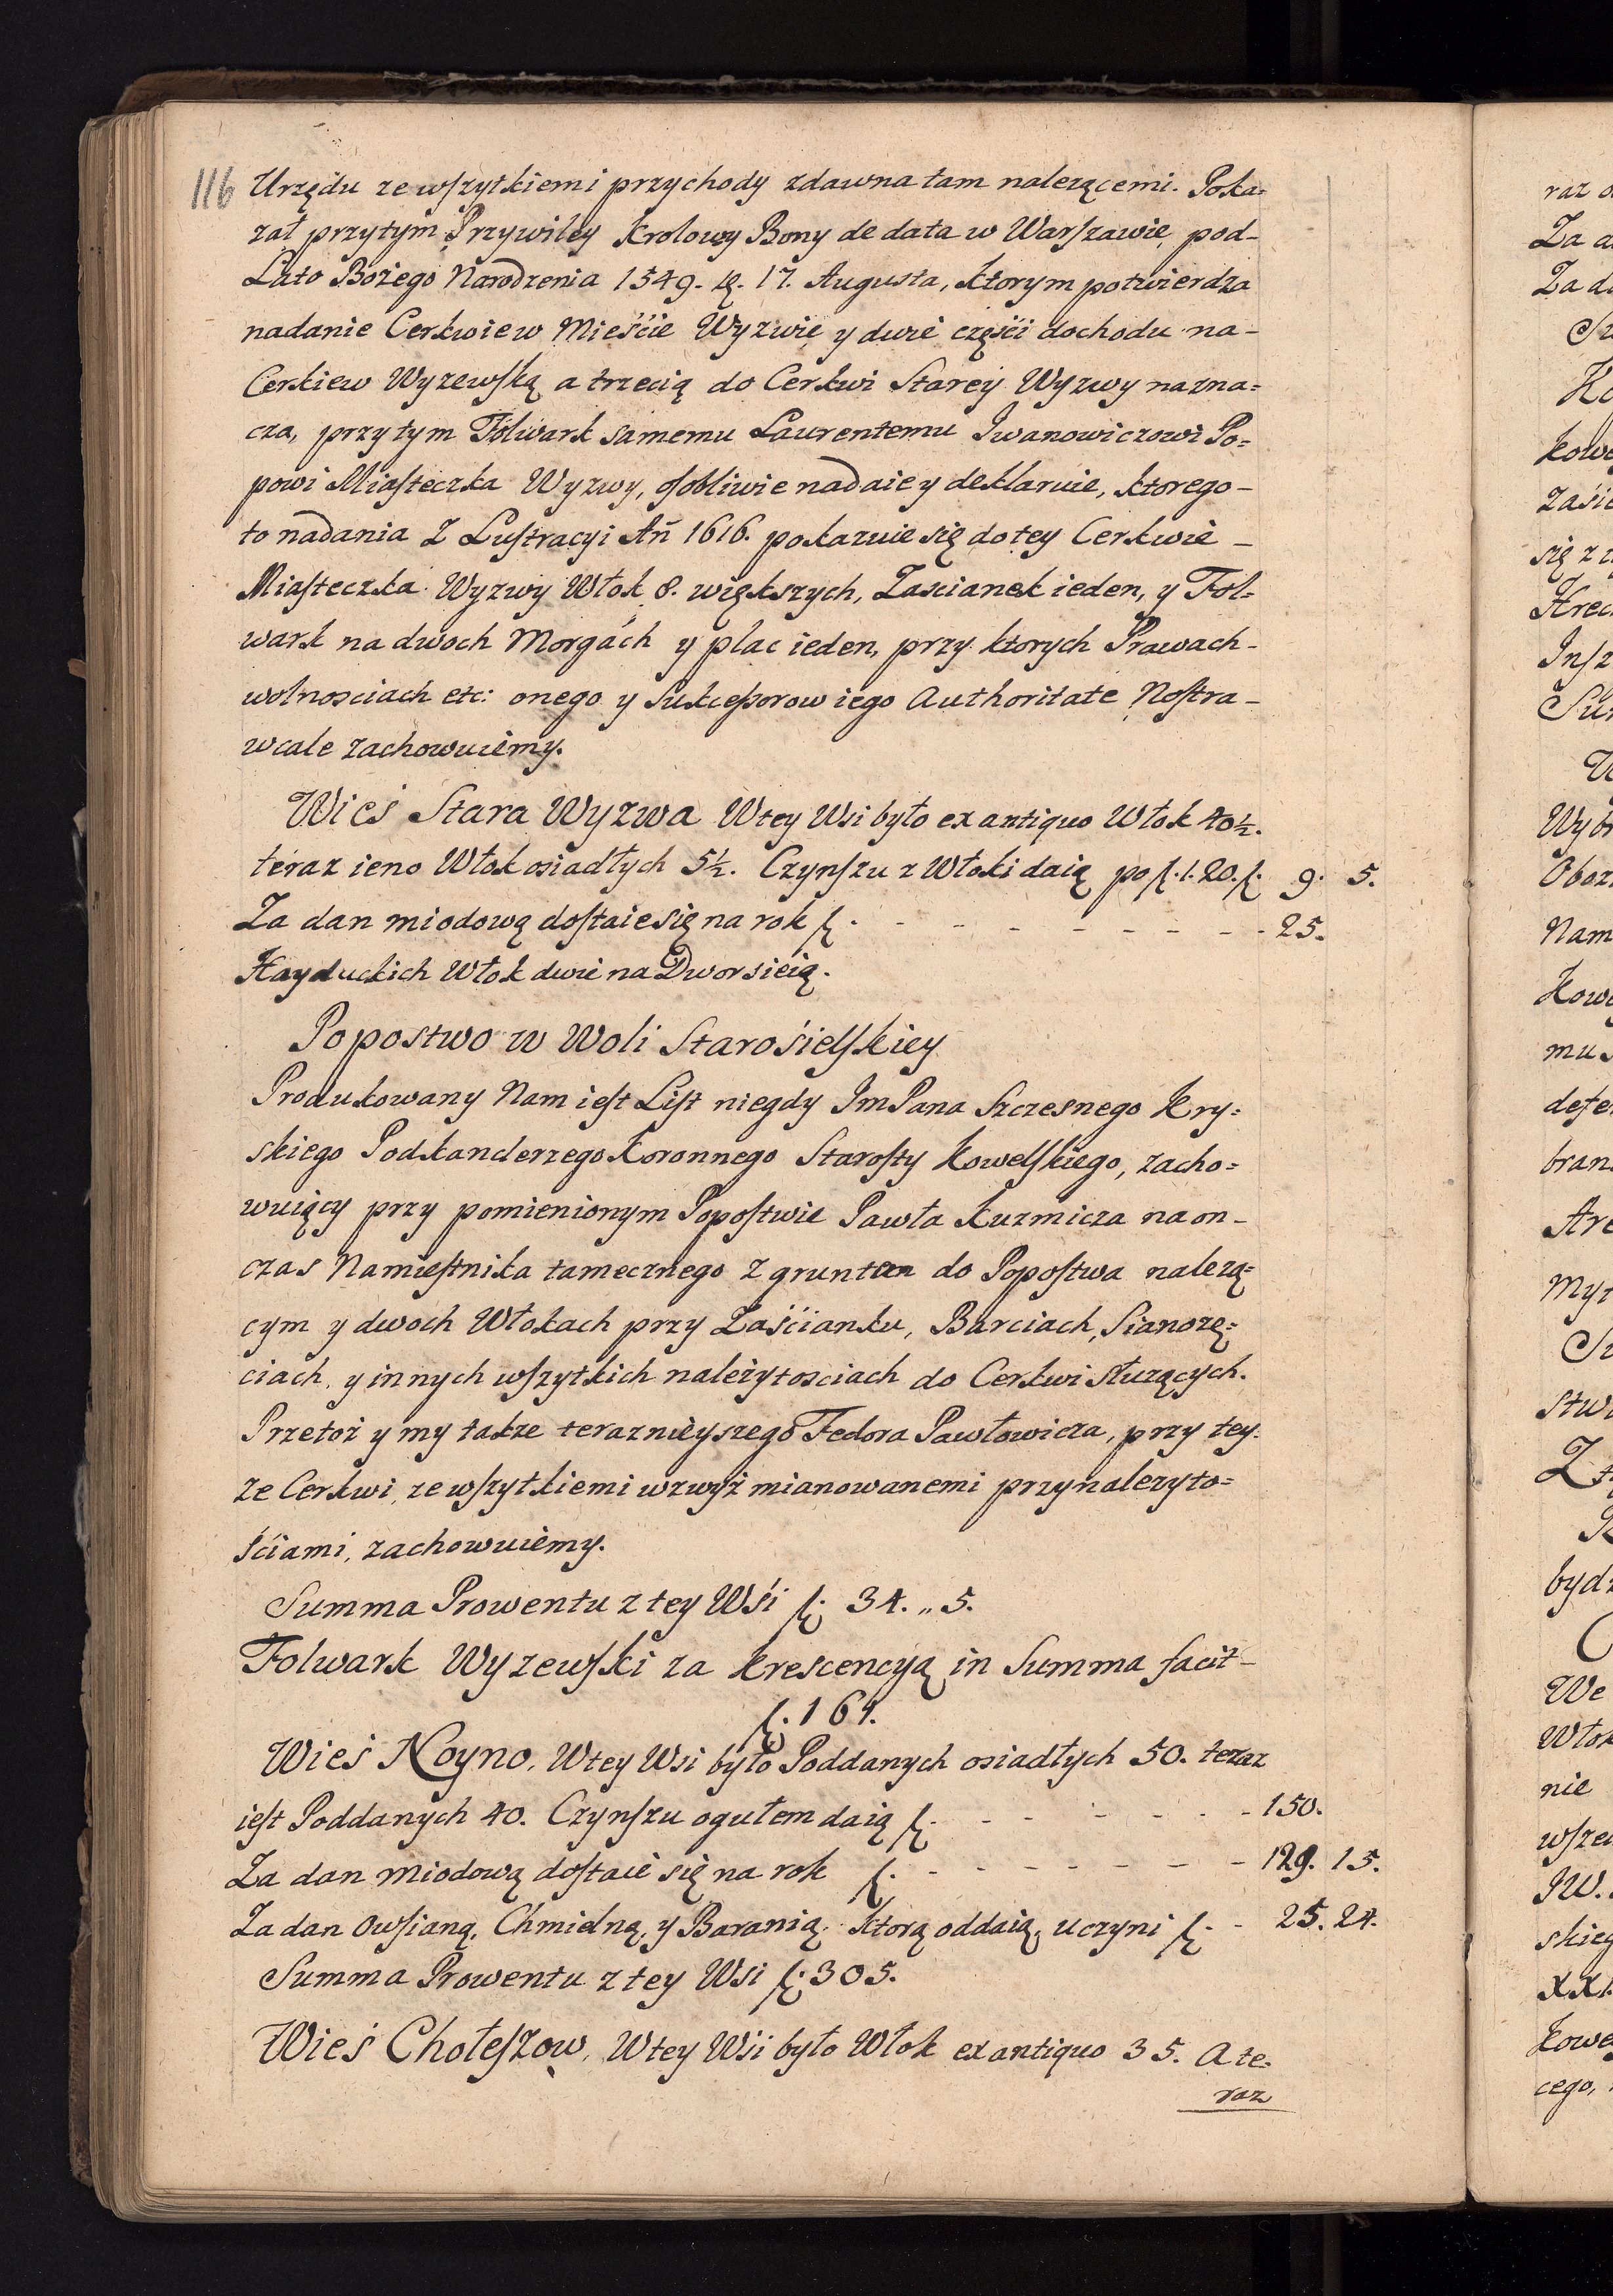 116
Urzędu ze wſzytkiemi przychody zdawna tam nalezącemi. Poka=
zał przytym Przywiley Krolowy Bony de data w Warſzawie pod-
Lato Bożego Narodzenia 1549. 17. Augusta, ktorym potwierdza
nadanie Cerkwie w Mieście Wyzwie y dwie częsći dochodu na-
Cerkiew Wyzewſką a trzecią do Cerkwi Starey Wyzwy nazna=
cza, przytym Folwark samemu Laurentemu Iwanowiczowi Po=
powi Miaſteczka Wyzwy, oſobliwie nadaie y deklaruie, ktorego-
to nadania Z Luſtracyi Añ 1616. pokazuie się do tey Cerkwie -
Miaſteczka Wyzwy Włok 8. większych, Zascianek ieden, y Fol=
wark na dwoch Morgách y plac ieden, przy ktorych Prawach-
wolnosciach etc: onego y Sukceſsorow iego Authoritate Noſtra-
wcale zachowuiemy.
Wieś Stara Wyzwa Wtey Wsi było ex antiquo Włok 40½.
teraz ieno Włok osiadłych 5½. Czynſzu z Włoki daią po ƒ. 1. 20. ƒ. 9. 5.
Za dan miodową doſtaie się na rok ƒ. - - - - - - - - 25.
Hayduckich Włok dwie na Dwor sieią.
Popostwo w Woli Starośielſkiey
Produkowany Nam ieſt Liſt niegdy ImPana Szczesnego Kry=
skiego Podkanclerzego Koronnego Staroſty Kowelſkiego, zacho=
wuiący przy pomienionym Popoſtwie Pawła Kuzmicza na on-
czas Namieſtnika tamecznego z gruntem do Popoſtwa nalezą=
cym y dwoch Włokach przy Zaścianku, Barciach, Sianozę=
ciach, y innych wſzytkich należytosciach do Cerkwi służących.
Przetoż y my także teraznieyszego Fedora Pawłowicza, przy tey=
ze Cerkwi, ze wſzytkiemi wzwyż mianowanemi przynalezyto=
ściami, zachowuiemy.
Summa Prowentu z tey Wśi ƒ. 34. „ 5.
Folwark Wyzewſki za krescencyą in Summa facit-
ƒ. 164.
Wieś Noyno. Wtey Wsi było Poddanych osiadłych 50. teraz
ieſt Poddanych 40. Czynſzu ogułem daią ƒ. - - - - - - 150.
Za dan miodową doſtaie się na rok ƒ. - - - - - - - 129. 15.
Za dan Owſianą, Chmielną, y Baranią, ktorą oddaią, uczyni ƒ. - 25. 24.
Summa Prowentu z tey Wsi ƒ. 305.
Wieś Chołeſzow, Wtey Wśi było Włok ex antiquo 35. A te=
raz